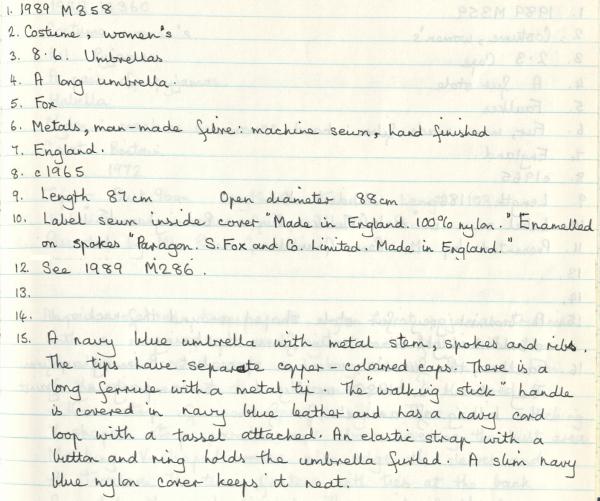 1. 1989 M358
2. Costume, women's
3. 8.6. Umbrellas
4. A long umbrella.
5. Fox
6. Metals, man-made fibre: machine sewn, hand finished
7. England.
8. c1965
9. Length 87cm Open diameter 88cm
10. Label sewn inside cover "Made in England. 100% nylon." Enamelled
on spokes "Paragon. S. Fox and Co. Limited. Made in England."
12. See 1989 M286.
13.
14.
15. A navy blue umbrella with metal stem, spokes and ribs.
The tips have separate copper-coloured caps. There is a
long ferrule with a metal tip. The "walking stick" handle
is covered in navy blue leather and has a navy cord
loop with a tassel attached. An elastic strap with a
button and ring holds the umbrella furled. A slim navy
blue nylon cover keeps it neat.